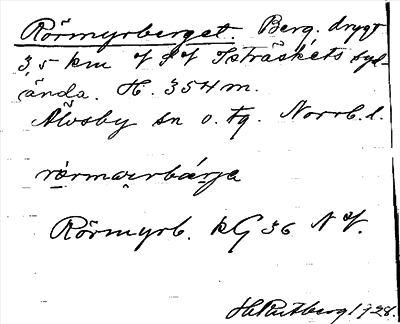 Rörmyrberget. Berg, drygt
3,5 km V S V Isträskets syd-
ända. H. 354 m.
Älvsby sn o. tg. Norrb. l.
rörmyrbärje
Rörmyrb. kG 36 N V.
H. Rutberg 1928.